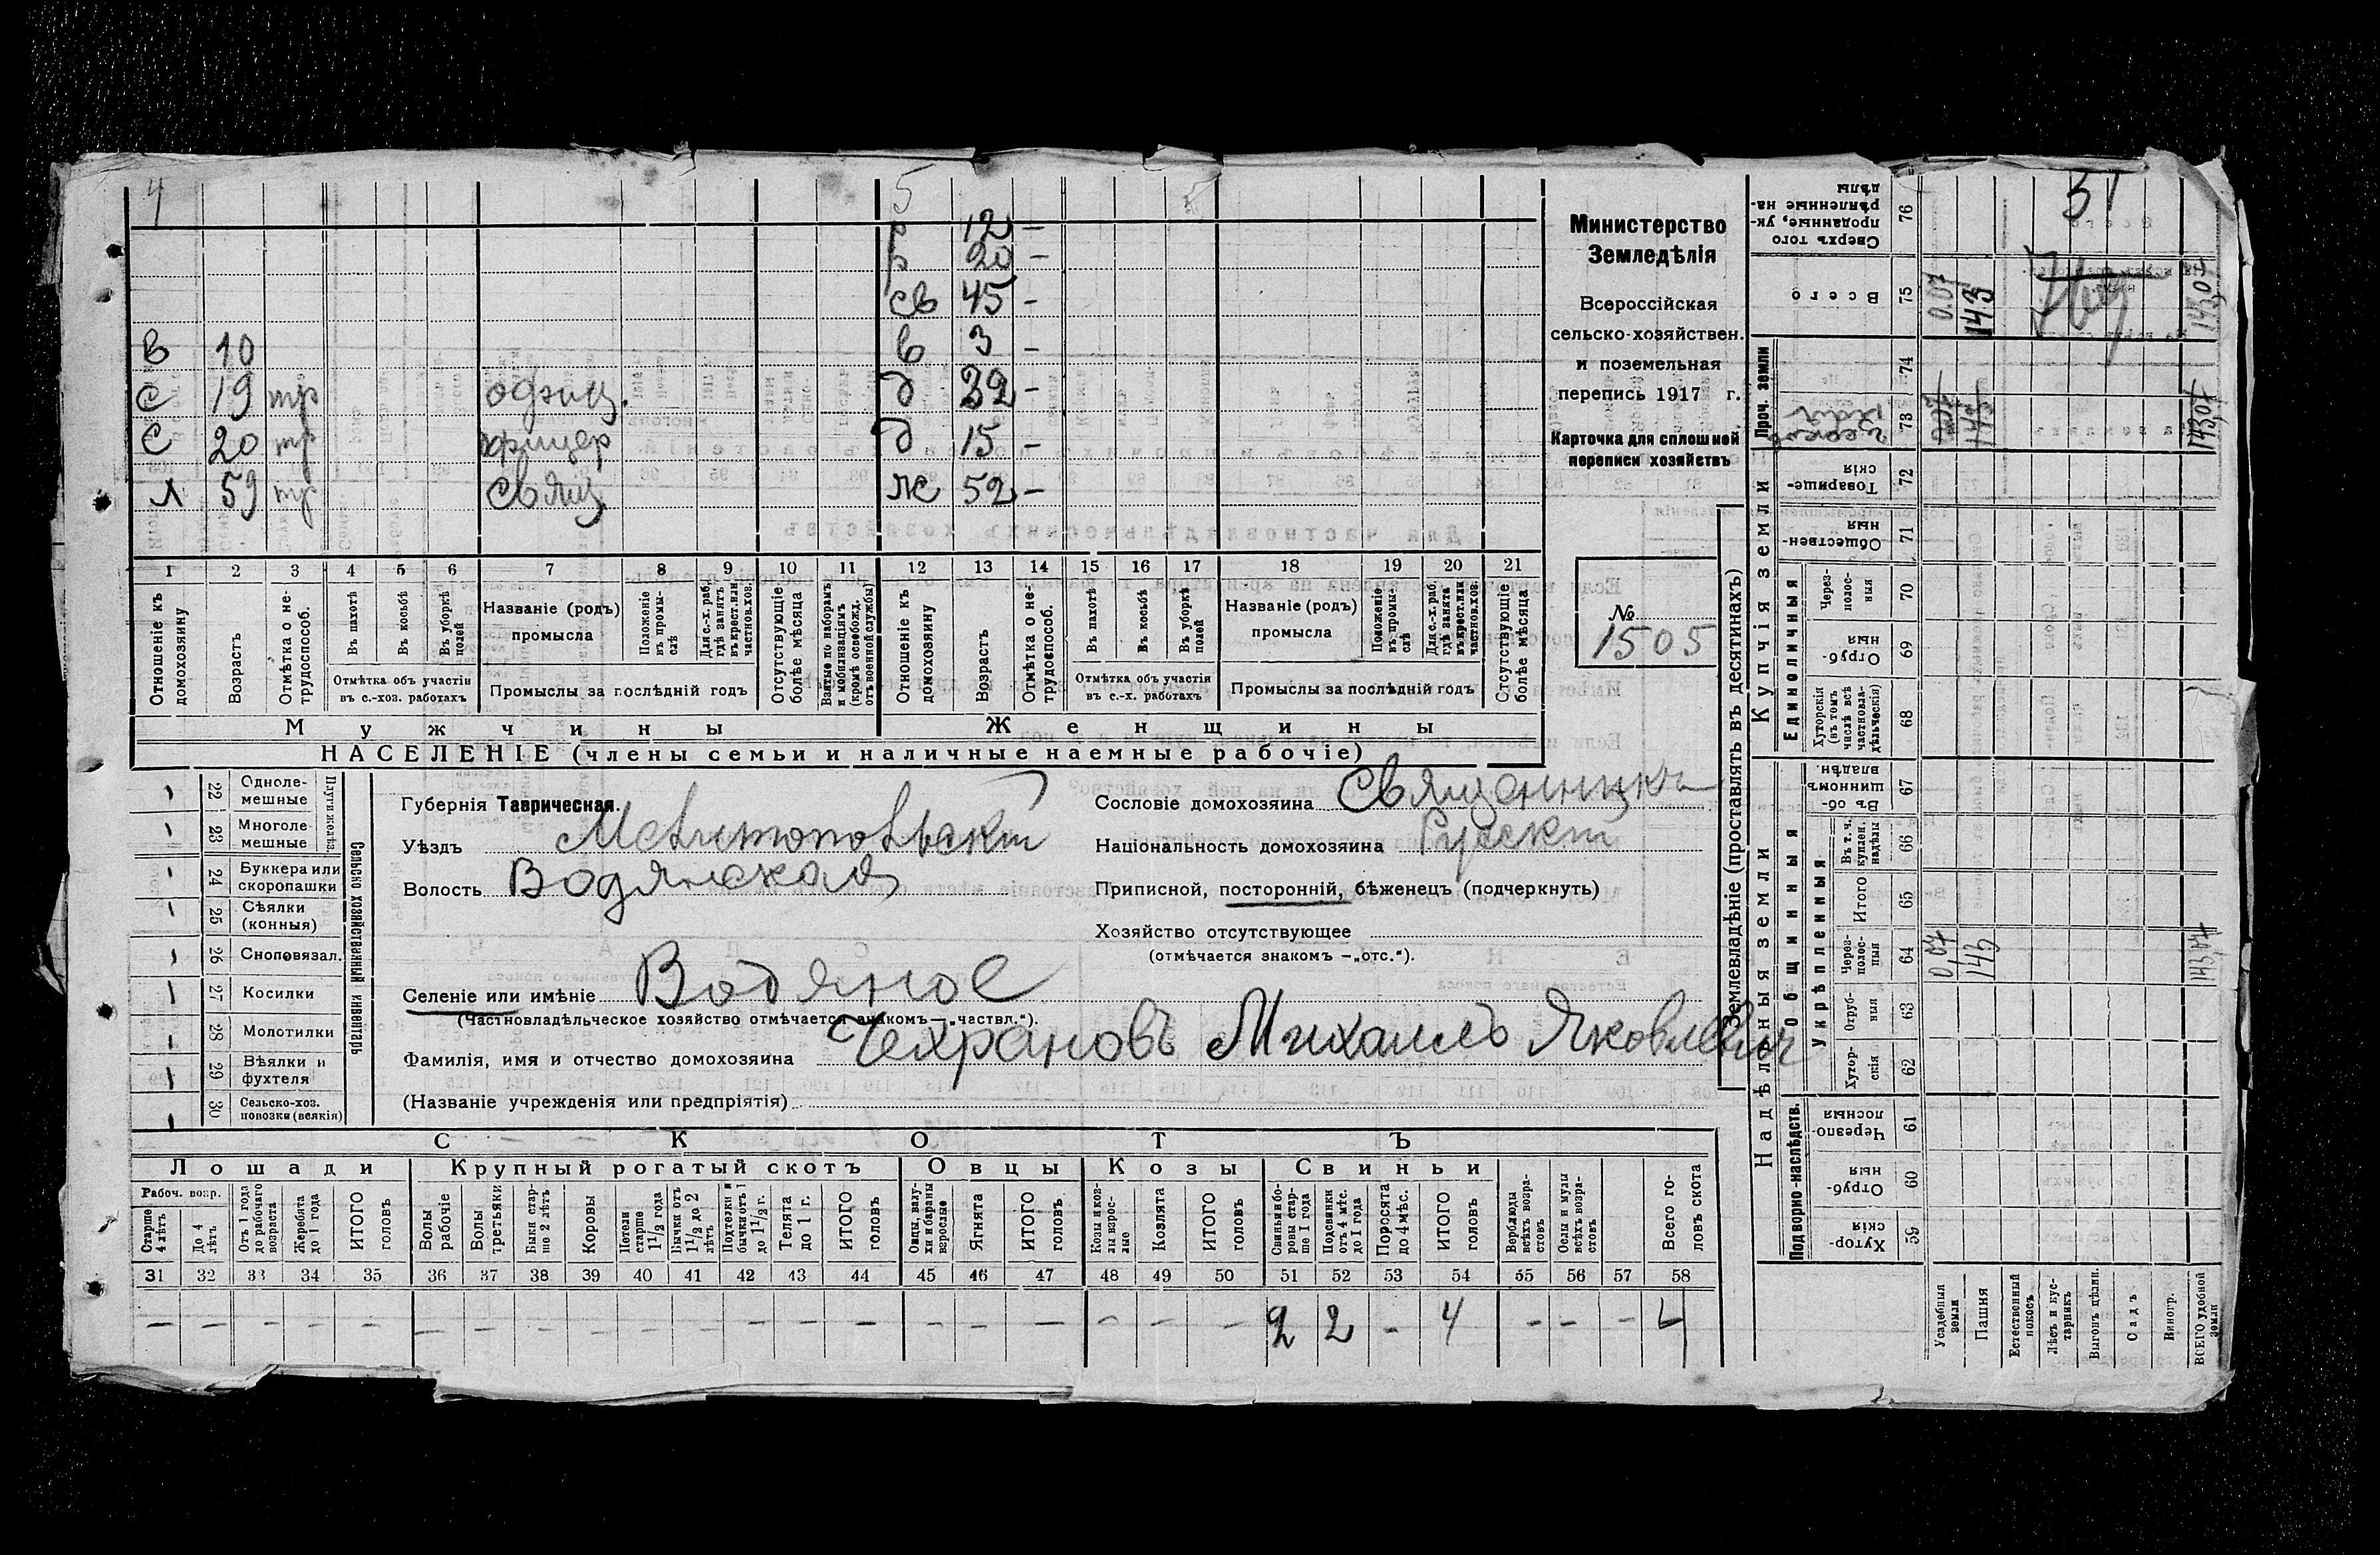 4
5
р 12 –
р 20 –
св 45 –
в 10
в 3 –
с 19 тр
д 32 –
с 20 тр офицер
д 15 –
л 59 тр свящ
ж 52 –
1 2 3 4 5 6 7 8 9 10 11 12 13 14 15 16 17 18 19 20 21
Отношеніе къ домохозяину
Возрастъ
Отмѣтка о нетрудоспособ.
Въ пахотѣ
Въ косьбѣ
Въ уборкѣ полей
Отмѣтка объ участіи въ с.-хоз. работахъ
Названіе (родъ) промысла
Положеніе въ промы-слѣ
Для с.-х. раб. гдѣ занятъ въ крест. или частнов. хоз.
Промыслы за послѣдній годъ
Отсутствующіе болѣе мѣсяца
Взятые по наборамъ и мобилизаціямъ (кромѣ освобожд. отъ военной службы)
Отношеніе къ домохозяину
Возрастъ
Отмѣтка о не-трудоспособ.
Въ пахотѣ
Въ косьбѣ
Въ уборкѣ полей
Отмѣтка объ участіи въ с.-х. работахъ
Названіе (родъ) промысла
Положеніе въ промы-слѣ
Для с.-х. раб. гдѣ занята въ крест. или частнов. хоз.
Промыслы за послѣдній годъ
Отсутствующіе болѣе мѣсяца
Мужчины
Женщины
НАСЕЛЕНІЕ (члены семьи и наличные наемные рабочіе)
Министерство
Земледѣлія
Всероссійская
сельско-хозяйствен.
и поземельная
перепись 1917 г.
Карточка для сплошной
переписи хозяйствъ
№
1505
Сельско хозяйственный инвентарь
Плуги желѣз.
22 Одноле-мешные
23 Многоле-мешные
24 Буккера или скоропашки
25 Сѣялки (конныя)
26 Сноповязал.
27 Косилки
28 Молотилки
29 Вѣялки и фухтеля
30 Сельско-хоз. повозки (всякія)
Губернія Таврическая.
Уѣздъ Мелитопольскій
Волость Водянская
Селеніе или имѣніе Водяное
(Частновладѣльческое хозяйство отмѣчается знакомъ—„частвл.“).
Фамилія, имя и отчество домохозяина Чехрановъ Михаилъ Яковлевич
(Названіе учрежденія или предпріятія)
Сословіе домохозяина Священникъ
Національность домохозяина Русскій
Приписной, посторонній, бѣженецъ (подчеркнуть)
Хозяйство отсутствующее
(отмѣчается знакомъ —„отс.“).
СКОТЪ
Лошади
Крупный рогатый скотъ
Овцы
Козы
Свиньи
Рабоч. возр.
Старше 4 лѣтъ
До 4 лѣтъ
Отъ 1 года до рабочаго возраста
Жеребята до 1 года
ИТОГО головъ
Волы рабочіе
Волы третьяки
Быки стар-ше 2 лѣтъ
Коровы
Нетели старше 1½ года
Бычки отъ 1½ до 2 лѣтъ
Подтелки и бычки отъ 1 до 1½ г.
Телята до 1 г.
ИТОГО головъ
Овцы, валу-хи и бараны взрослые
Ягнята
ИТОГО головъ
Козы и коз-лы взрос-лые
Козлята
ИТОГО головъ
Свиньи и бо-ровы стар-ше 1 года
Подсвинки отъ 4 мѣс. до 1 года
Поросята до 4 мѣс.
ИТОГО головъ
Верблюды всѣхъ возра-стовъ
Ослы и мулы всѣхъ возра-стовъ
Всего го-ловъ скота
31 32 33 34 35 36 37 38 39 40 41 42 43 44 45 46 47 48 49 50 51 52 53 54 55 56 57 58
– – – – – – – – – – – – – – – – – – – – 2 2 – 4 – – – 4
Землевладѣніе (проставлять въ десятинахъ)
Надѣльныя земли
Купчія земли
Проч. земли
Подворно-наслѣдств.
Общинныя
Укрѣпленныя
Единоличныя
76 Сверхъ того проданные, ук-рѣпленные на-дѣлы
75 Всего 0.07 143 143,07
74
73 143,07
72 Товарище-скія
71 Обществен-ныя
70 Через-полос-ныя
69 Отруб-ныя
68 Хуторскія (въ томъ числѣ всѣ частновла-дѣльческія)
67 Въ об-щинномъ владѣн.
66 Въ т. ч. куплен. надѣлы
65 Итого
64 Через-полос-ныя 0,07 143 143,07
63 Отруб-ныя
62 Хутор-скія
61 Черезпо-лосныя
60 Отруб-ныя
59 Хутор-скія
Усадебныя земли
Пашня
Естественный покосъ
Лѣсъ и кус-тарникъ
Выгонъ цѣлин.
Садъ
Виногр.
ВСЕГО удобной земли